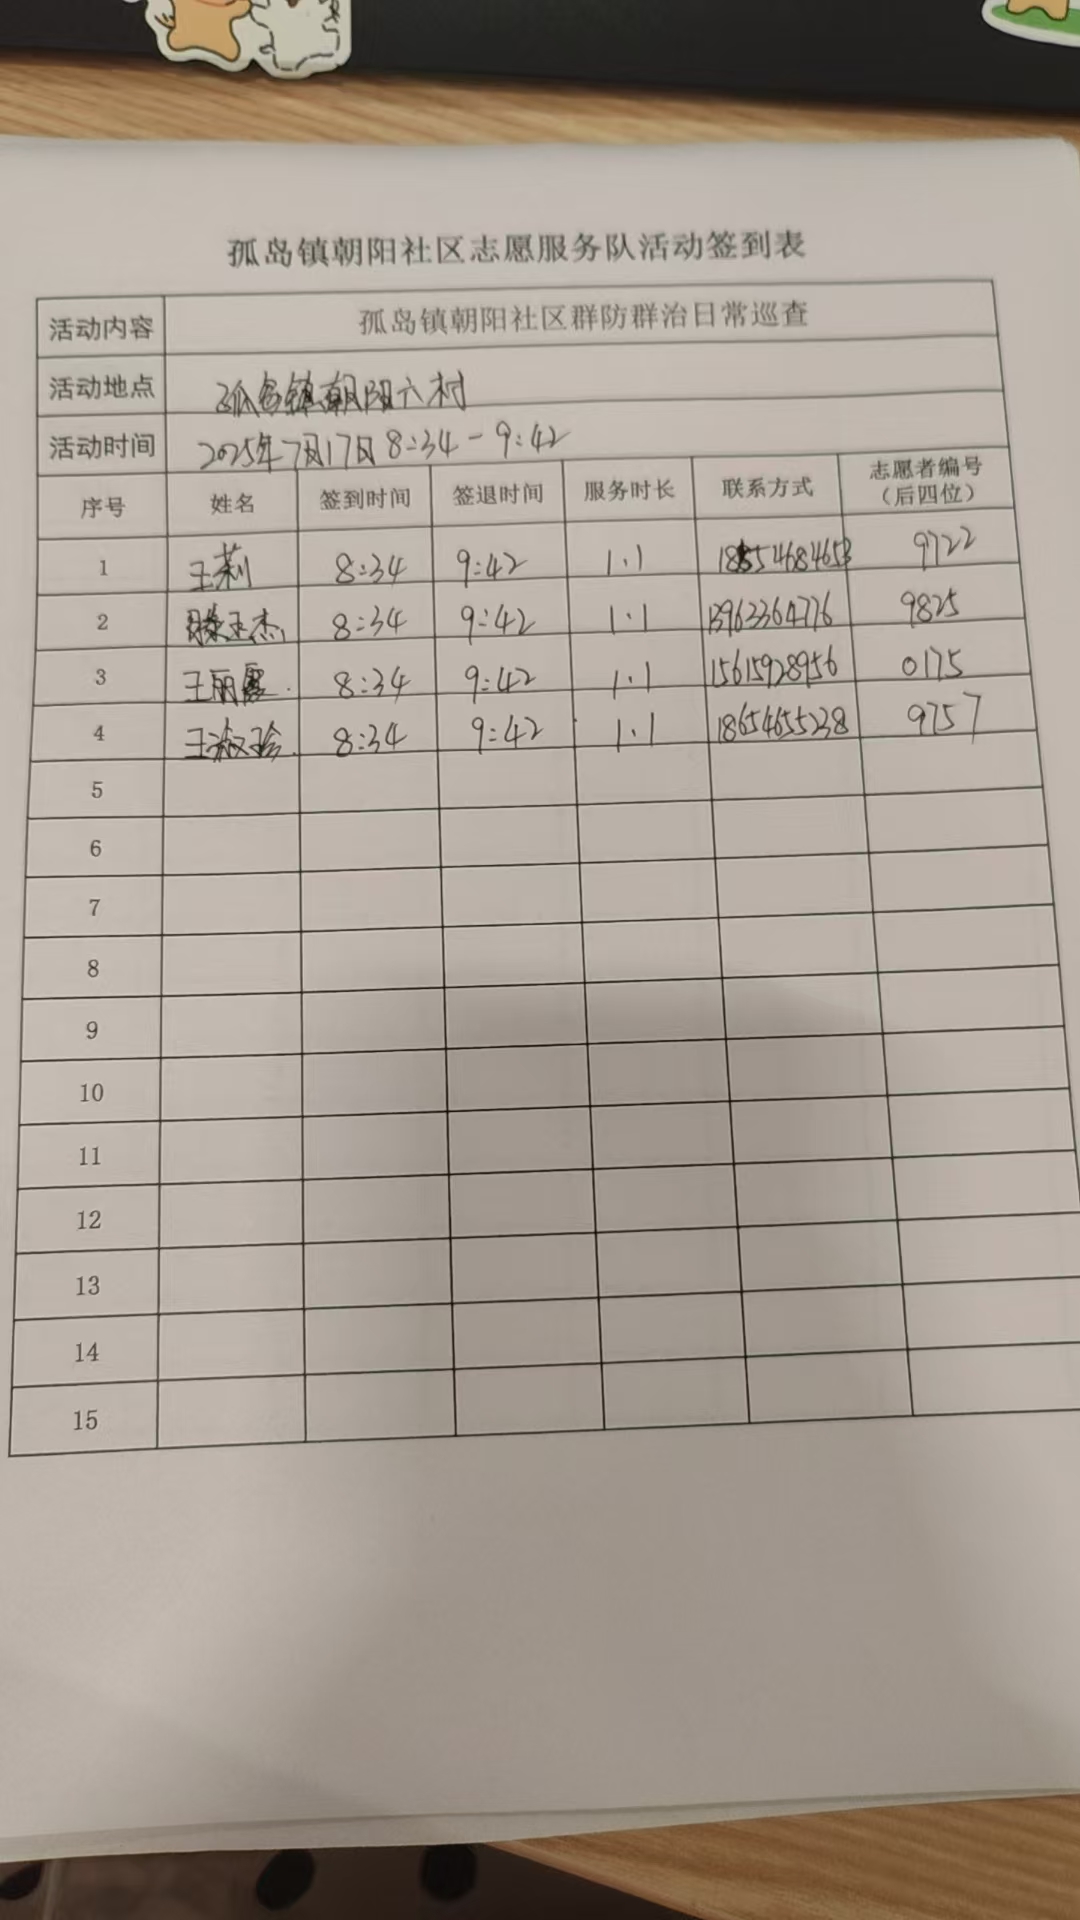 孤岛镇朝阳社区志愿服务队活动签到表
活动内容 孤岛镇朝阳社区群防群治日常巡查
活动地点 孤岛镇朝阳六村
活动时间 2025年7月17日 8:34-9:42
序号 姓名 签到时间 签退时间 服务时长 联系方式 志愿者编号（后四位）
1 王莉 8:34 9:42 1.1 9722
2 滕玉杰 8:34 9:42 1.1 13963364776 9825
3 王丽霞 8:34 9:42 1.1 15615928956 0175
4 王淑珍 8:34 9:42 1.1 18654655238 9757
5
6
7
8
9
10
11
12
13
14
15